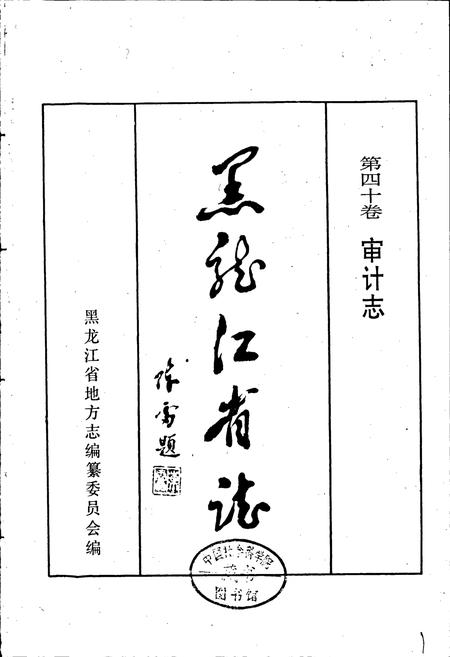 第四十卷 审计志
黑龙江省志
陈雷题
黑龙江省地方志编纂委员会编
中国社会科学院
图书馆